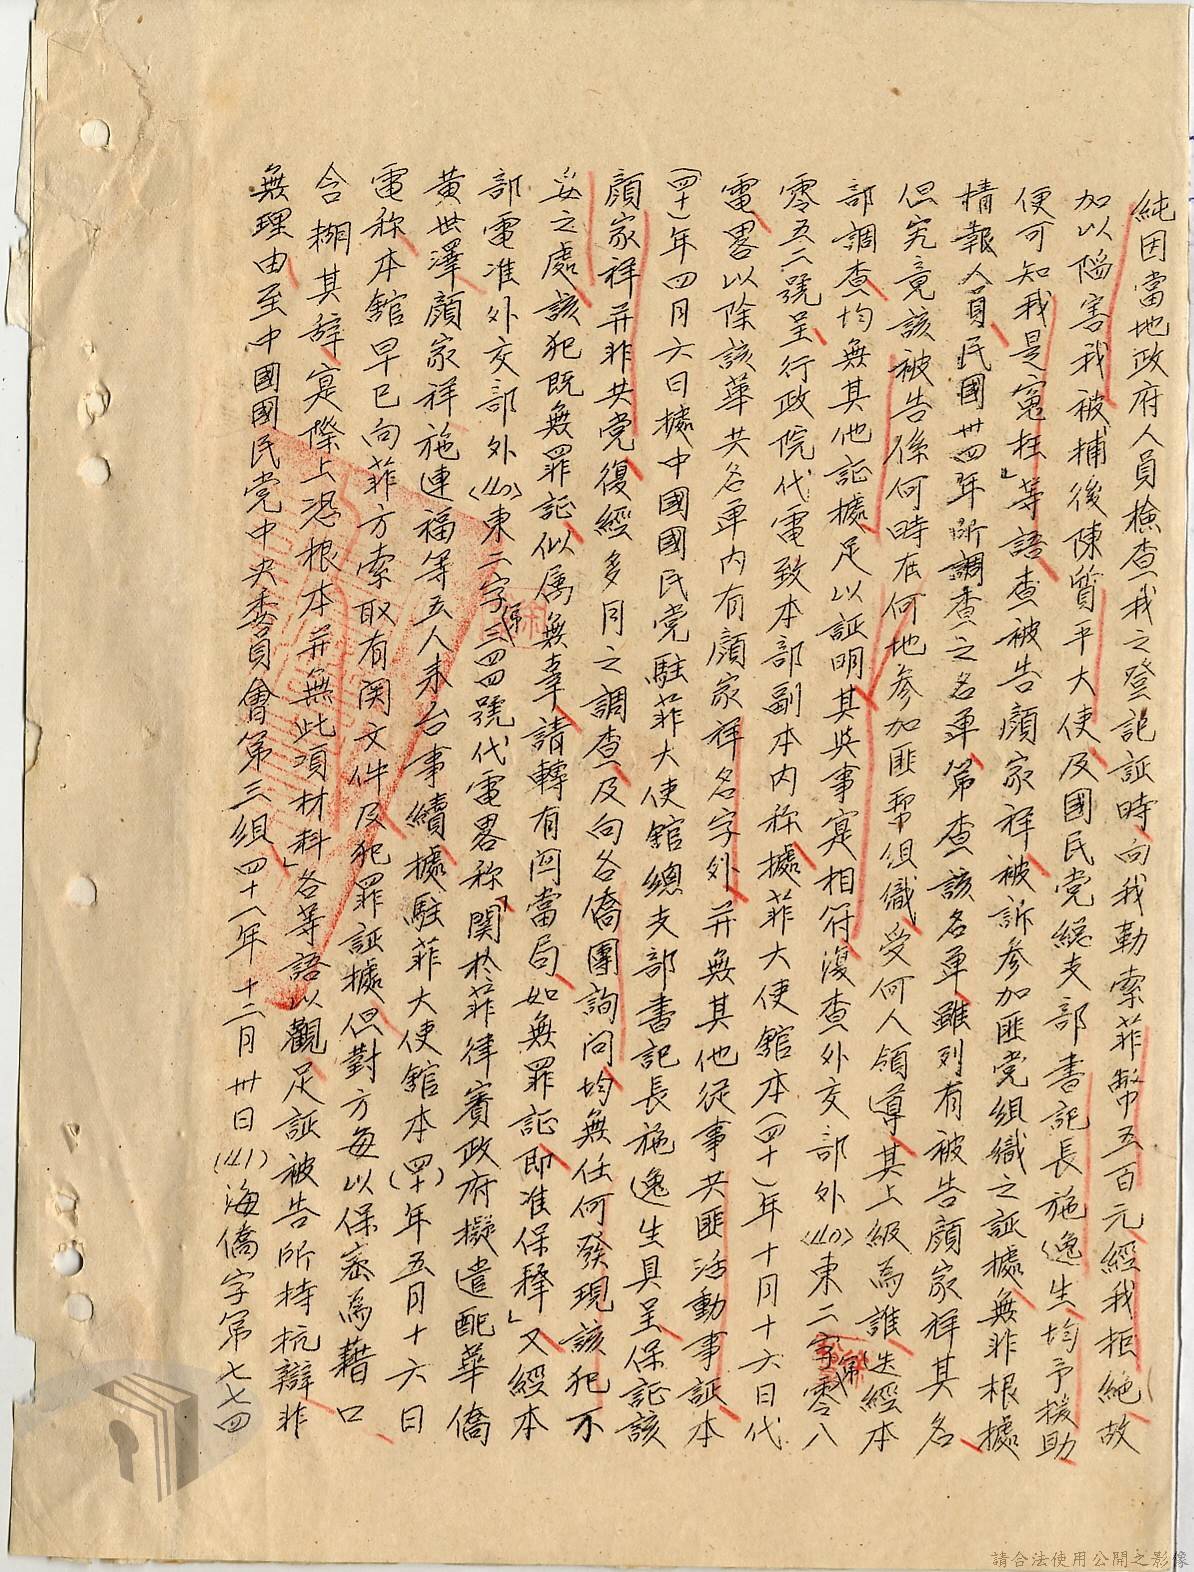 純因當地政府人員檢查我之登記証時向我勒索菲幣五百元經我拒絕故
加以陷害我被捕後陳質平大使及國民党總支部書記長施逸生均予援助
便可知我是冤枉」等語查被告顏家祥被訴參加匪党組織之証據無非根據
情報人員民國卅四年所調查之名單第查該名單雖列有被告顏家祥其名
但究竟該被告係何時在何地參加匪帮組織受何人領導其上級為誰迭經本
部調查均無其他証據足以証明其與事寔相符復查外交部外(40)東二字第零八
零五二號呈行政院代電致本部副本內称據菲大使館本(四十)年十月十六日代
電畧以除該華共名單內有顏家祥名字外并無其他從事共匪活動事証本
(四十)年四月六日據中國國民党駐菲大使館總支部書記長施逸生具呈保証該
顏家祥并非共党復經多月之調查及向各僑團詢问均無任何發現該犯不
妥之處該犯既無罪証似属無辜請轉有関當局如無罪証即准保释」又經本
部電准外交部外(40)東二字第三四四號代電畧称「関於菲律賓政府擬遣配華僑
黃世澤顏家祥施連福等五人来台事續據駐菲大使館本(四十)年五月十六日
電称本館早已向菲方索取有関文件及犯罪証據但對方每以保密為藉口
含糊其辞寔際上恐根本并無此項材料」各等語以觀足証被告所持抗辯非
無理由至中國國民党中央委員會第三組四十一年十二月卅日(41)海僑字第七七四
請合法使用公開之影像